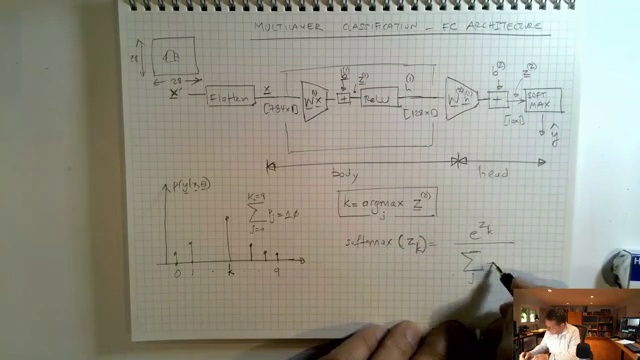 MULTILAYER CLASSIFICATION - FC ARCHITECTURE
28
28
x' Flatten x [784x1] W⁽¹⁾x + b⁽¹⁾ z⁽¹⁾ ReLU h⁽¹⁾ [128x1] W⁽²⁾h⁽¹⁾ + b⁽²⁾ z⁽²⁾ [10x1] SOFT
MAX
ŷ
body head
p(y|x,θ)
K=9
∑ Pj = 1.0
j=0
k = argmax z⁽²⁾
j
softmax (z_k) = e^{z_k}
∑
j
0 1 k 9